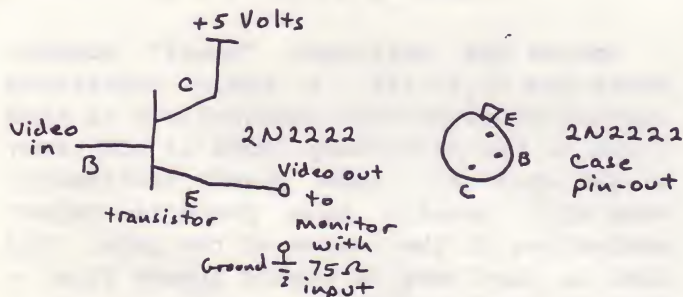 +5 Volts
C
Video
in
B
2N2222
E
transistor
Video out
to
monitor
with
75Ω
input
Ground
E
B
C
2N2222
Case
pin-out